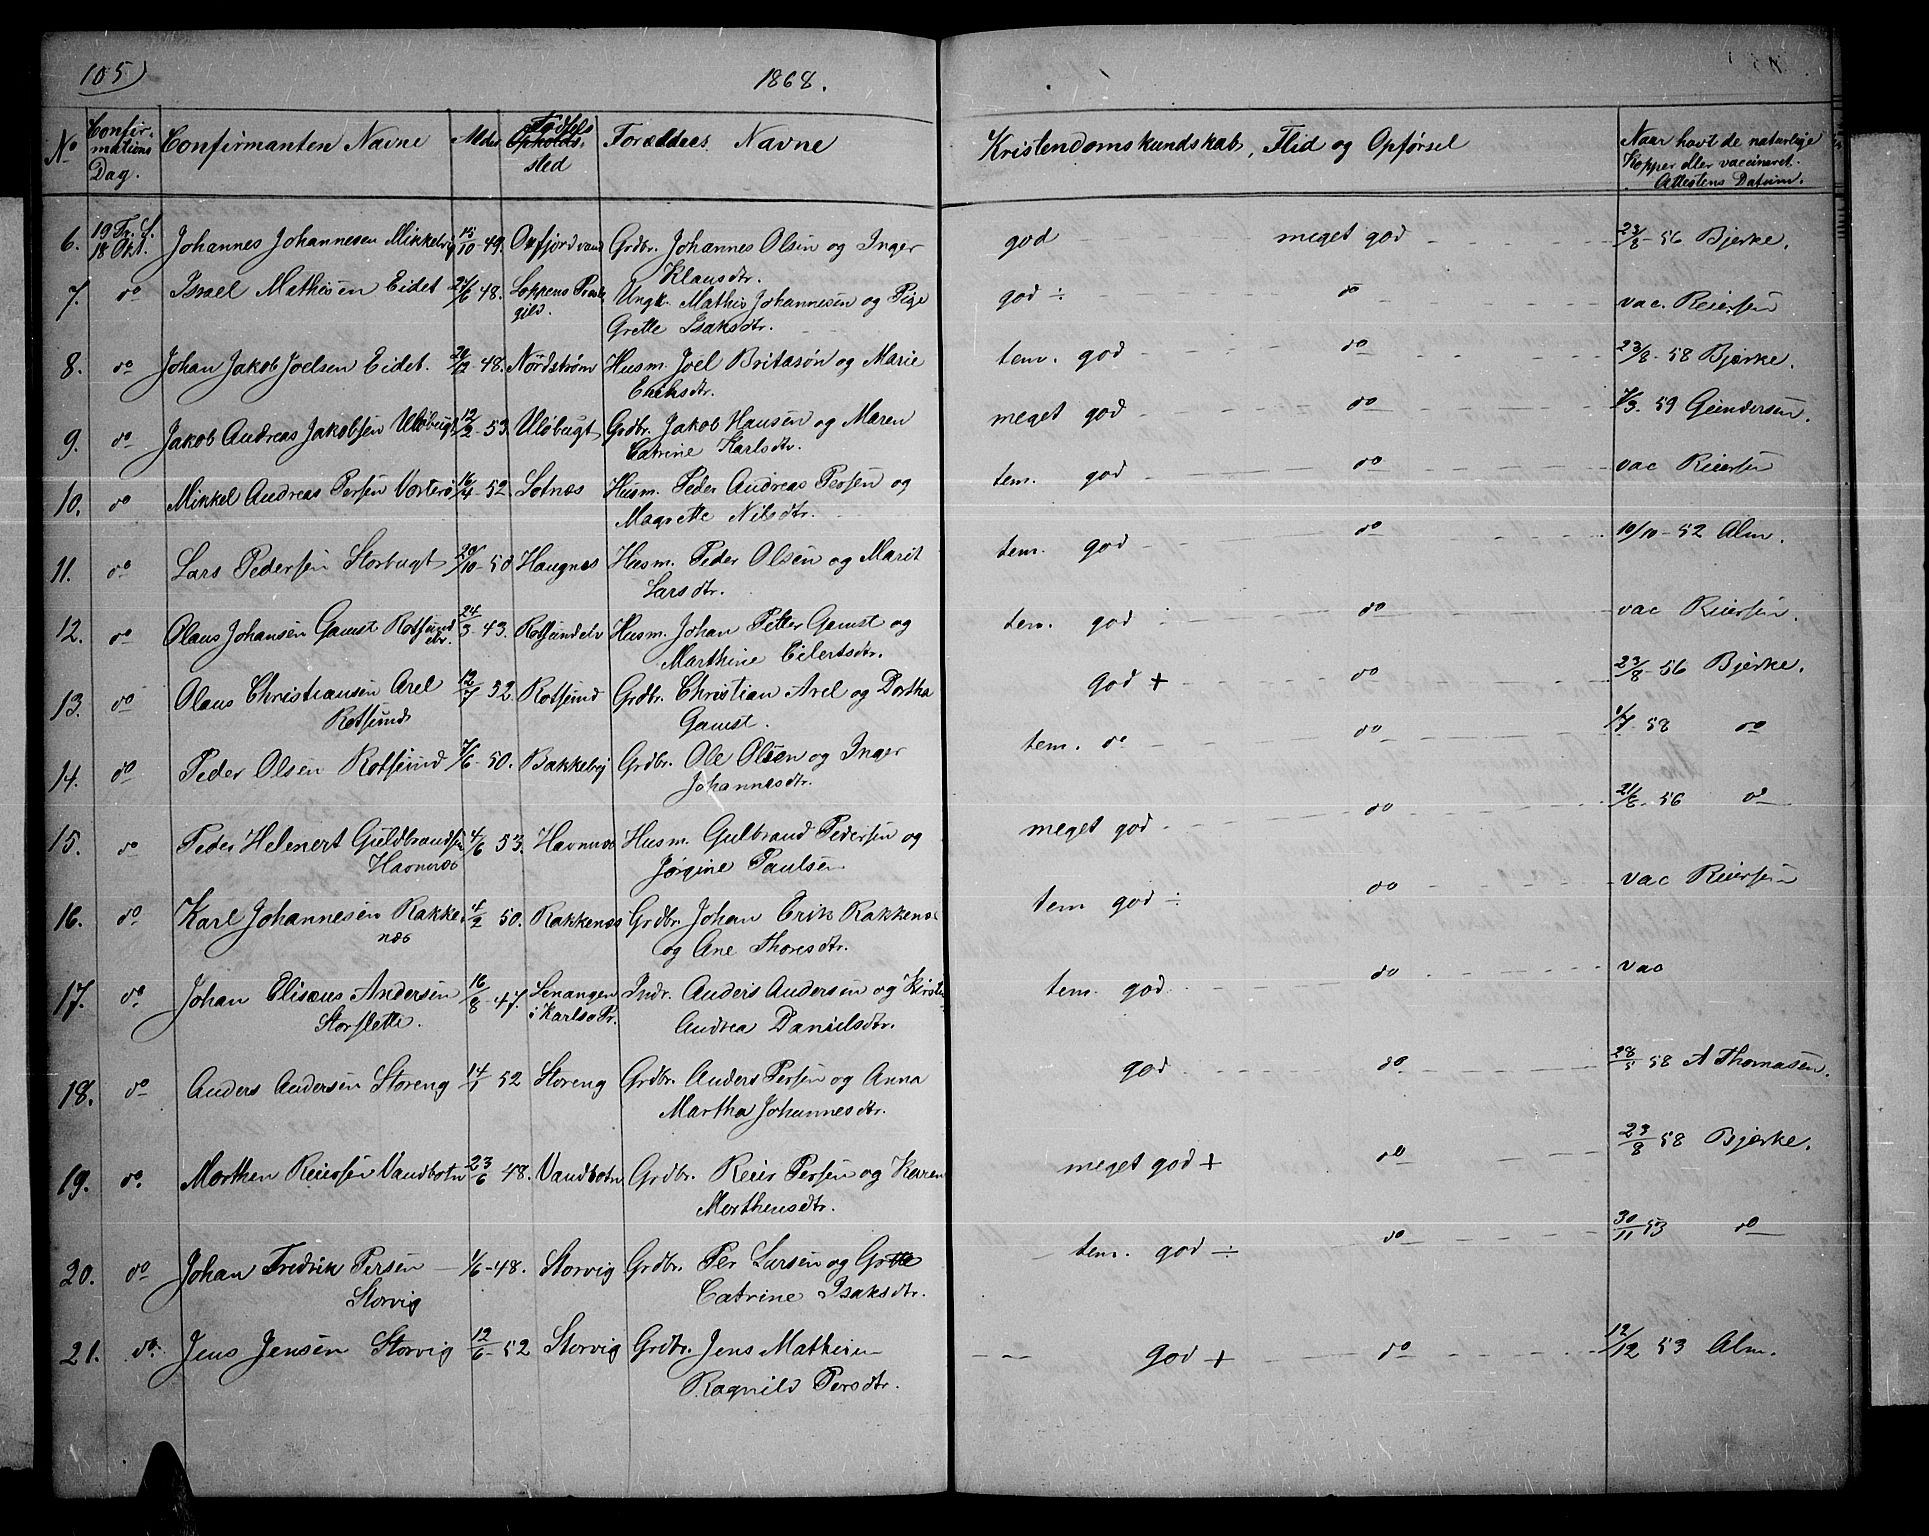 105)
1868.
No Confirmations Dag. Confirmanten Navne Alder Fødselssted Forældres Navne Kristendomskundskab, Flid og Opførsel Naar havt de naturlige Kopper eller vaccineret. Attestens Datum.
6. 19 Tr. S. 18 Okt. Johannes Johannesen Mikkelvig 15/10-49. Oxfjordvand Grdbr. Johannes Olsen og Inger god meget god 23/8-56 Bjerke.
Klausdtr.
7. do Israel Mathisen Eidet 24/6-48. Loppens Prestegild. Ungk. Mathis Johannesen og Pige god ÷ do vac. Reiersen
Grette Isaksdtr.
8. do Johan Jakob Joelsen Eidet. 20/12-48. Nordstrøm Husm. Joel Britasøn og Marie tem. god do 23/8-58 Bjerke.
Eriksdtr.
9. do Jakob Andreas Jakobsen Uløbugt 12/2-53. Uløbugt Grdbr. Jakob Hansen og Maren meget god do 7/3. 59 Gundersen.
Catrine Karlsdtr.
10. do Mikkel Andreas Persen Vorterø 16/4-52. Sotnæs Husm. Peder Andreas Persen og tem. god do vac Reiersen
Magrette Nilsdtr.
11. do Lars Pedersen Storbugt 20/10-50 Haugnes Husm. Peder Olsen og Marit tem. god do 10/10-52 Alm.
Larsdtr.
12. do Olaus Johansen Gamst Rotsundelv. 24/3-43. Rotsundelv Husm. Johan Petter Gamst og tem. god do vac Reiersen.
Marthine Eilertsdtr.
13. do Olaus Christiansen Arel 12/7-52. Rotsund Grdbr. Christian Arel og Dortha god + do 23/8-56 Bjerke.
Rotsund Gamst.
14. do Peder Olsen Rotsund 7/6-50. Bakkeby Grdbr. Ole Olsen og Inger tem. do do 1/7-58 do
Johannesdtr.
15. do Peder Helenert Guldbrandsen 4/6 53. Havnnæs Husm. Gulbrand Pedersen og meget god do 21/8-56 do
Havnnæs Jørgine Paulsen
16. do Karl Johannesen Rakke- 4/2 50. Rakkenæs Grdbr. Johan Erik Rakkenæs tem god ÷ do vac Reiersen
næs og Ane Thoresdtr.
17. do Johan Elisæus Andersen 16/8-47. Lenangen i Karlsø Pr. Indr. Anders Andersen og Kirsten tem. god do vac
Storslette. Andrea Danielsdtr.
18. do Anders Andersen Storeng 14/1 52 Storeng Grdbr. Anders Persen og Anna god do 28/5 58 A Thomasen.
Martha Johannesdtr.
19. do. Morthen Reiersen Vandbotn 23/6 48. Vandbotn Grdbr. Reier Persen og Karen meget god + do 23/8 58 Bjerke.
Morthensdtr.
20. do Johan Fredrik Persen 1/6-48. Storvig Grdbr. Per Larsen og Grette tem. god ÷ do 30/11 53 do
Storvig Catrine Isaksdtr.
21. do. Jens Jensen Storvig 12/6-52 Storvig Grdbr. Jens Mathisen god + do 12/12 53 Alm.
Ragnild Persdtr.